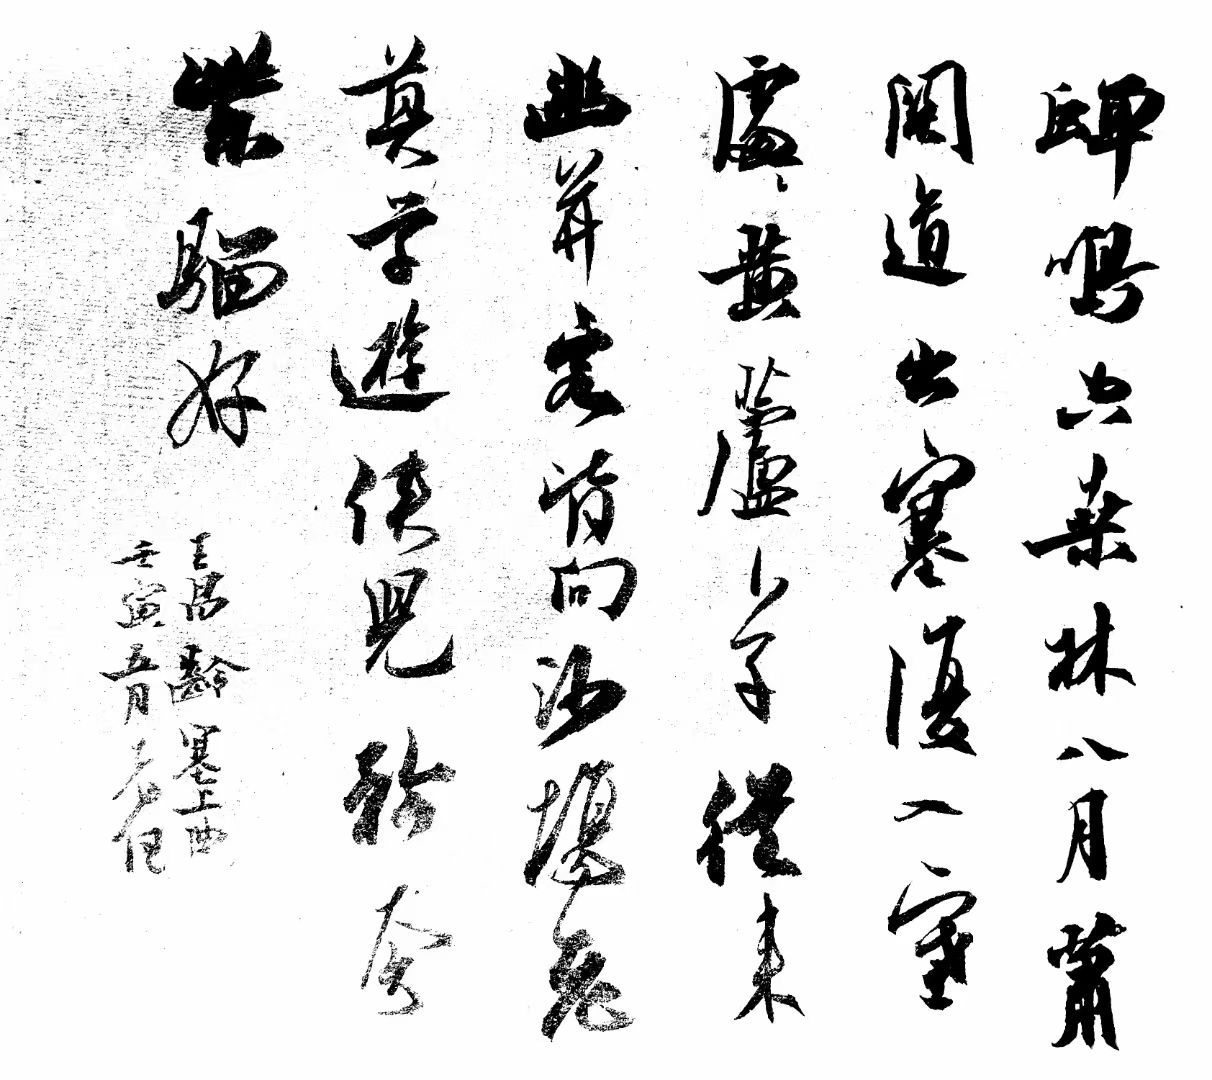 蟬鳴空桑林八月蕭
関道出塞復入塞
處〻黄蘆草從来
幽并客皆向沙場老
莫学遊俠児矜夸
紫騮好
王昌齡塞上曲
壬寅五月